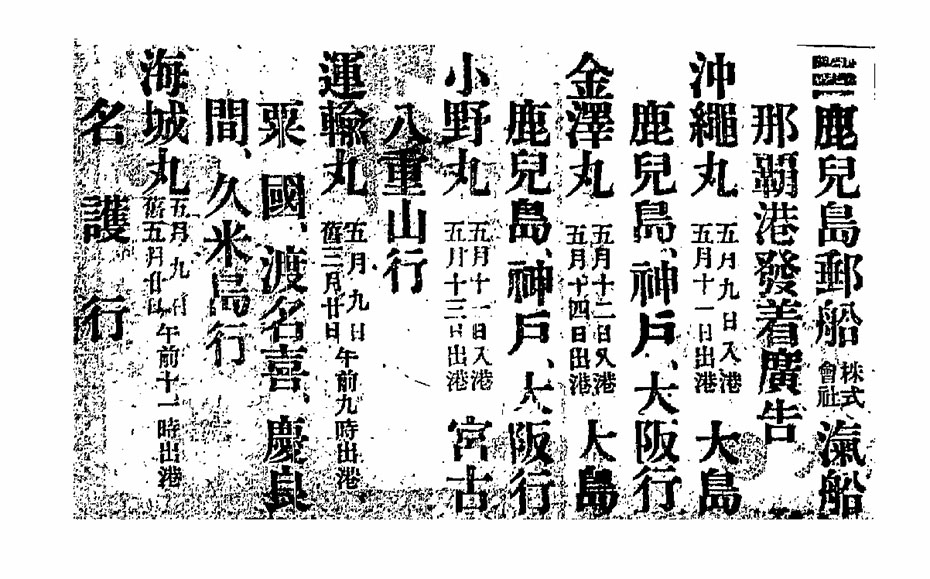 鹿兒島郵船株式會社滊船
那覇港發着廣告
沖繩丸 五月九日入港 五月十一日出港 大島
鹿兒島、神戶、大阪行
金澤丸 五月十二日入港 五月十四日出港 大島
鹿兒島、神戶、大阪行
小野丸 五月十一日入港 五月十三日出港 宮古
八重山行
運輸丸 五月九日 舊三月廿日 午前九時出港
粟國、渡名喜、慶良
間、久米島行
海城丸 五月九日 午前十一時出港
名護行